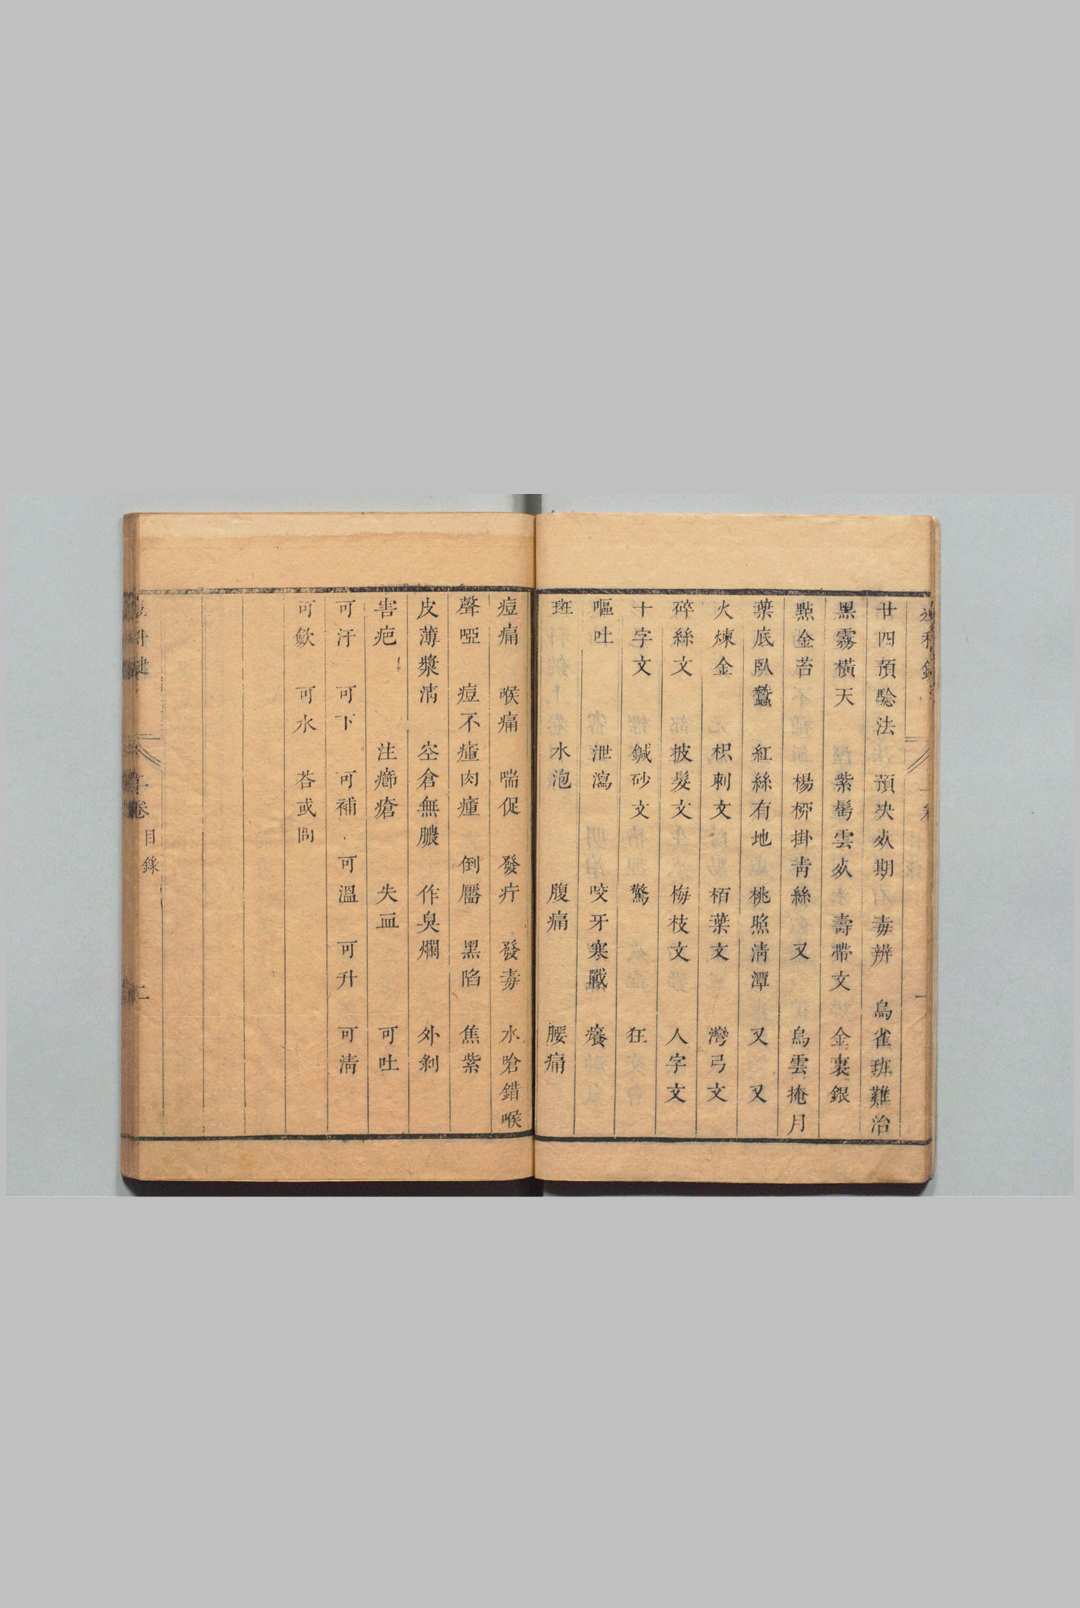 廿四預騐法　預决死期　石毒辨　烏雀班難治
黑霧橫天　紫鬢雲死未　壽帶文　金裏銀
點金苔　楊柳掛青絲　又　烏雲掩月
葉底臥蠶　紅絲有地　桃照清潭　又　又
火煉金　枳刺文　栢葉文　灣弓文
碎絲文　披髮文　梅枝文　人字文
十字文　鍼砂文　驚　狂
嘔吐　泄瀉　咬牙寒戰　癢
班　水泡　腹痛　腰痛
痘痛　喉痛　喘促　發疔　發毒　水嗆錯喉
聲啞　痘不瘇肉瘇　倒靨　黑陷　焦紫
皮薄漿清　空倉無膿　作臭爛　外剥
害疤　注癤瘡　失血　可吐
可汗　可下　可補　可溫　可升　可清
可歛　可水　荅或問
卷　目錄
二